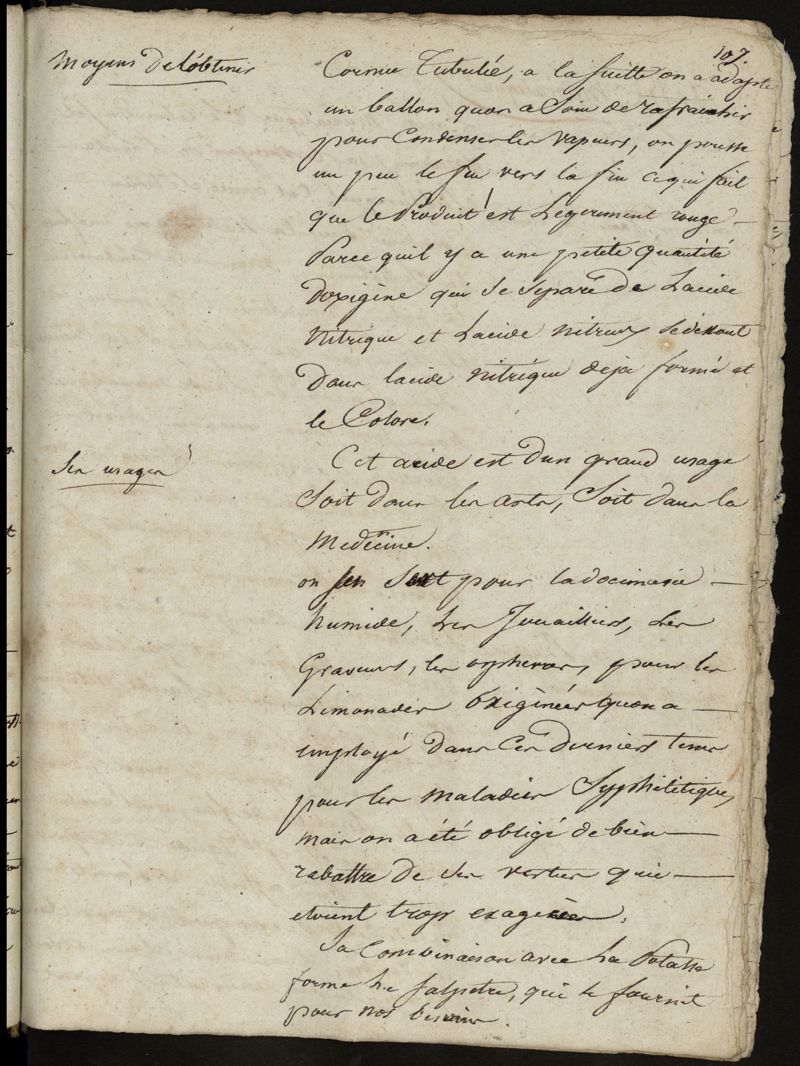 107.
Moyens de l'obtenir
Cornue Tubulée, a la suitte on a adapte
un ballon quon a Soin de rafraichir
pour Condenser les vapeurs, on pousse
un peu le feu vers la fin ce qui fait
que le Produit est Legerement rouge
Parce quil y a une petite quantité
Doxigène qui Se Separe de Lacide
Nitrique et Lacide nitreux Se dissout
Dans lacide nitrique deja formé et
le Colore.
Ses usages
Cet acide est dun grand usage
Soit dans les arts, Soit dans la
Medecine.
on sen Sert pour la docimasie
humide, Les Jouailliers, Les
Graveurs, les orphevres, pour les
Limonades Oxigénées quon a
employé dans Ces derniers tems
pour les maladies Syphilitiques,
mais on a été obligé de bien
rabattre de Ses vertus qui
etoient trop exagerées.
Sa Combinaison avec La Potasse
forme Le Salpetre, qui le fournit
pour nos besoins.